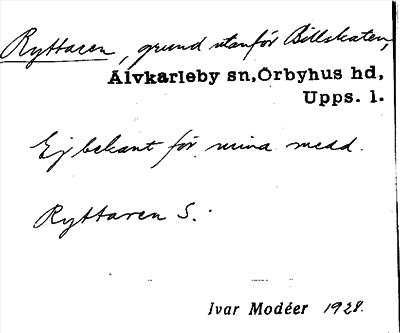 Ryttaren, grund utanför Billskaten,
Älvkarleby sn, Örbyhus hd,
Upps. l.
Ej bekant för mina medd.
Ryttaren S.
Ivar Modéer 1928.